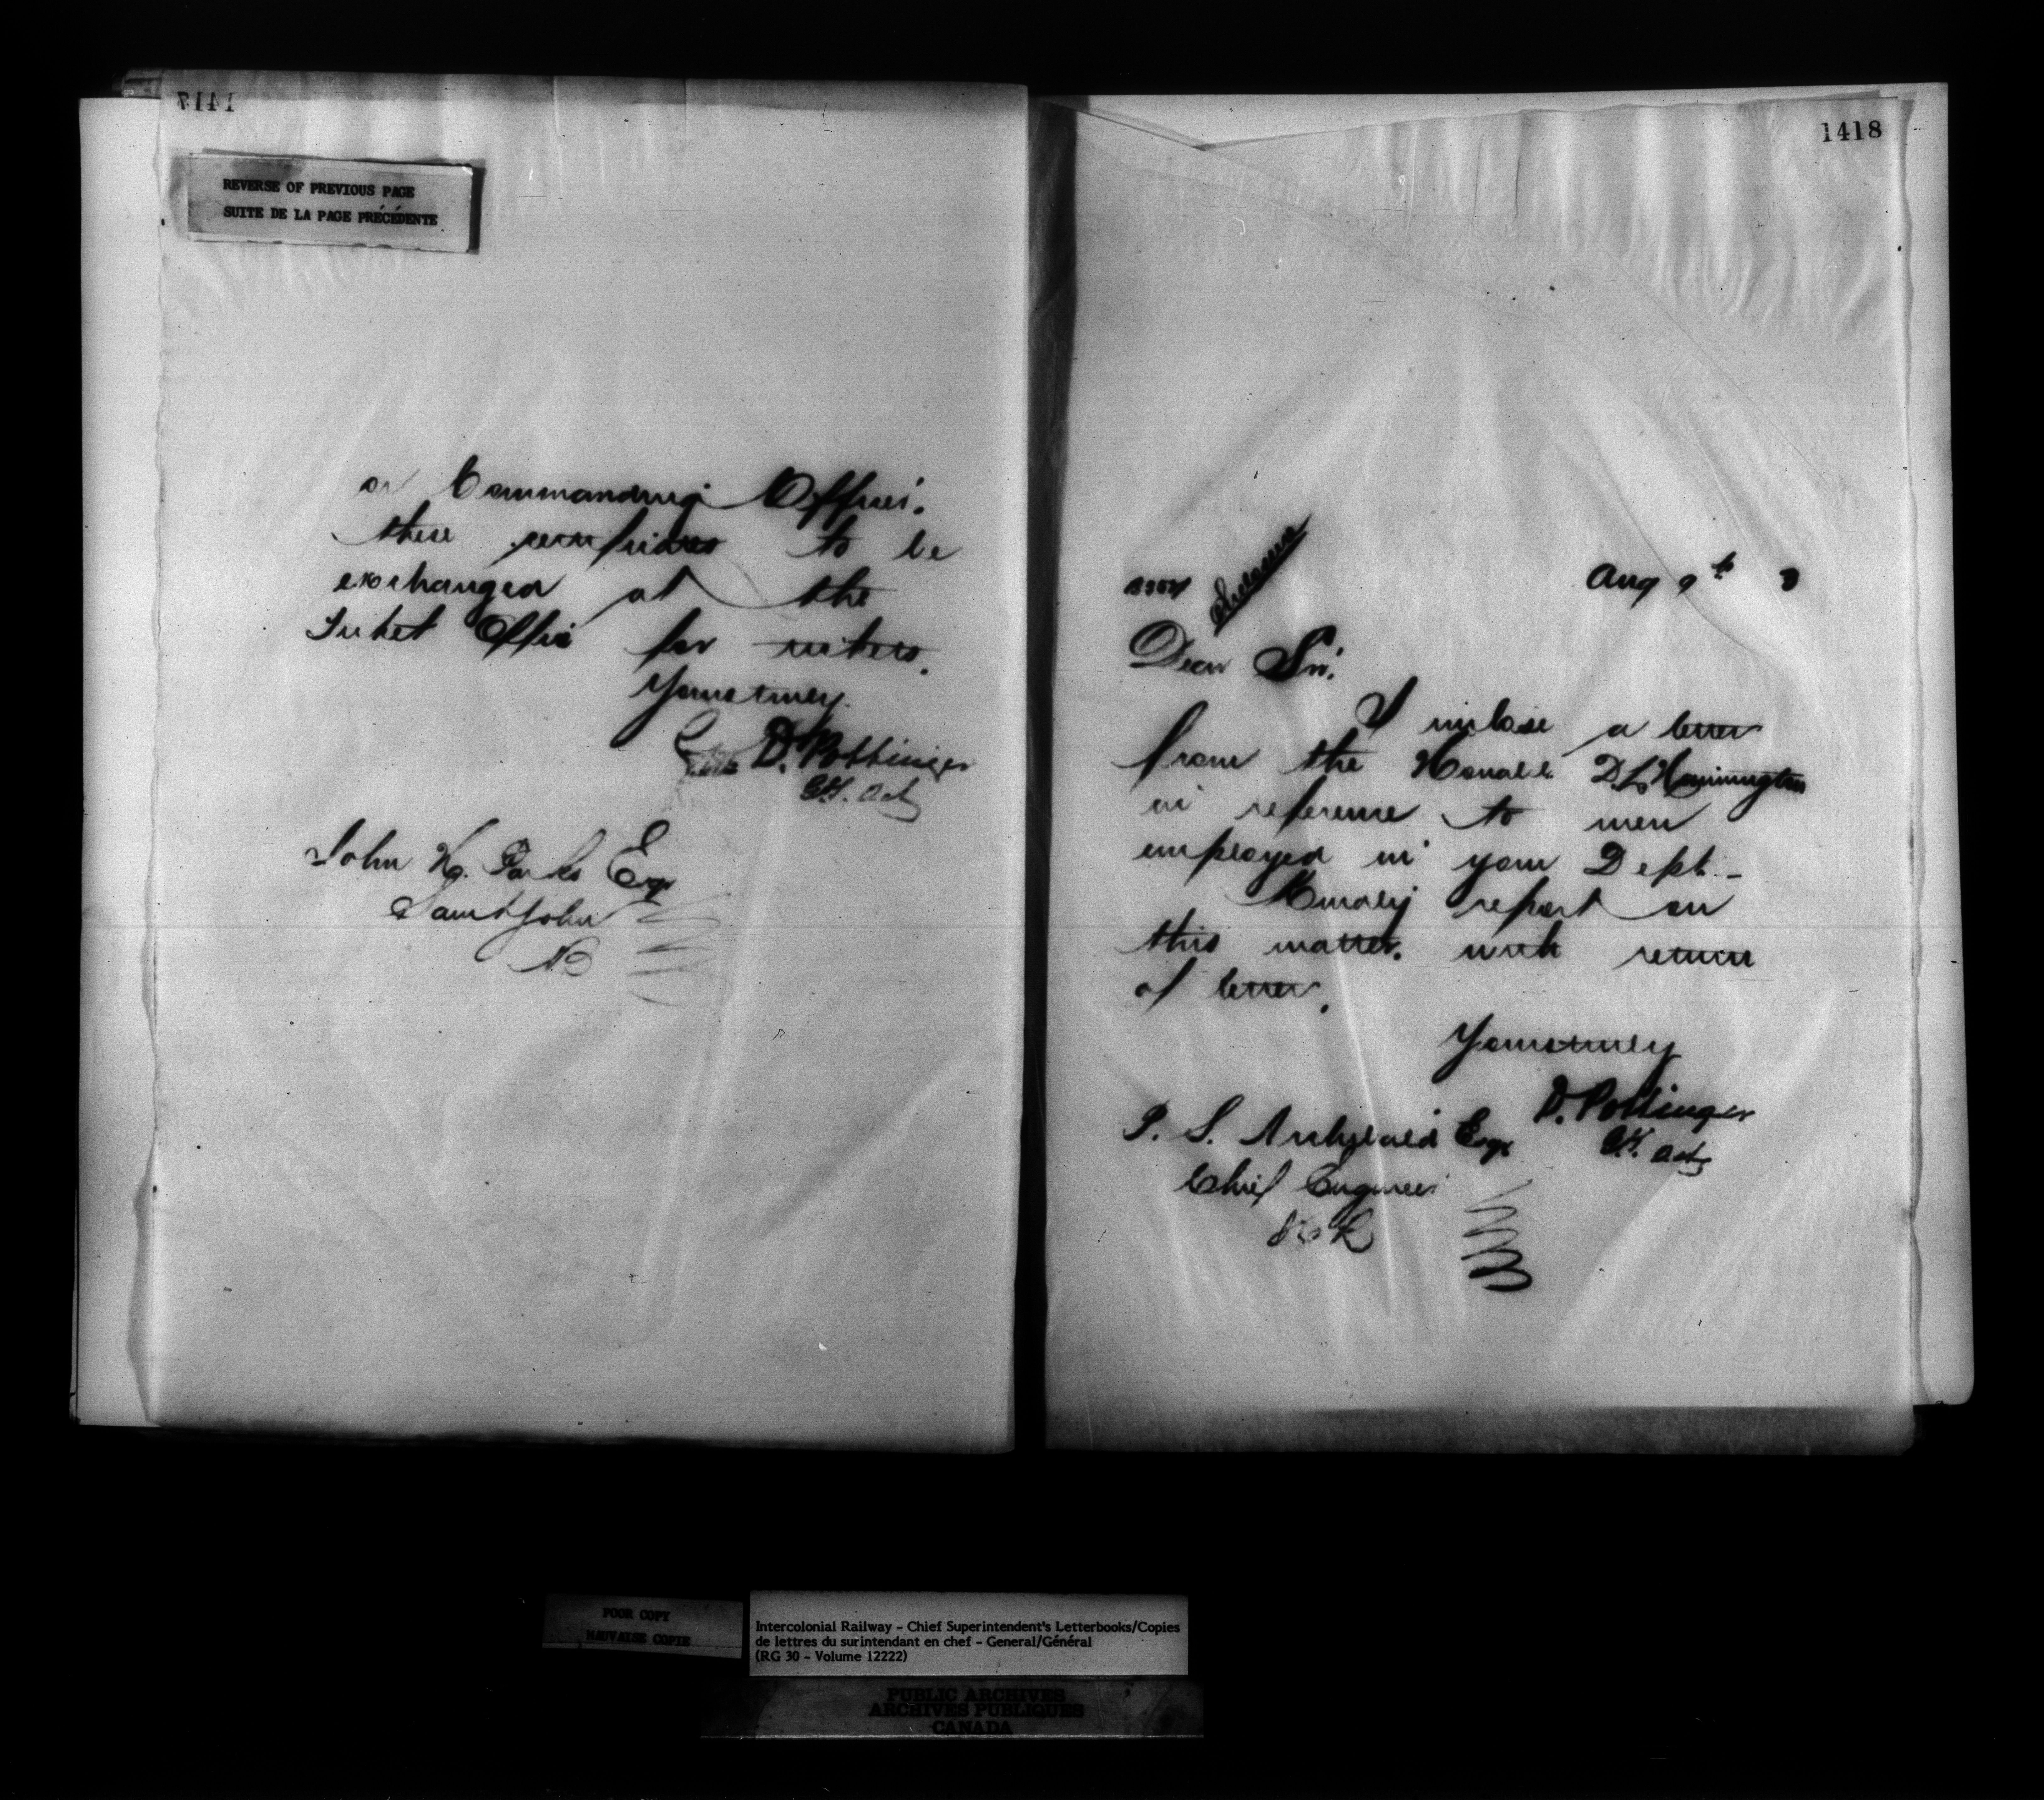 1417
REVERSE OF PREVIOUS PAGE
SUITE DE LA PAGE PRÉCÉDENTE
or Commanding Officer.
these certificates to be
exchanged at the
Ticket Office for tickets.
Yours truly
D. Pottinger
John H. Parks Esq
Saint John
NB
1418
Aug 9th
Dear Sir.
I inclose a letter
from the Honable D L Hanington
in reference to men
employed in your Dept. -
Kindly report on
this matter. with return
of letter.
Yours truly
D. Pottinger
P. S. Archibald Esqr
Chief Engineer
POOR COPY
MAUVAISE COPIE
Intercolonial Railway - Chief Superintendent's Letterbooks/Copies
de lettres du surintendant en chef - General/Général
(RG 30 - Volume 12222)
PUBLIC ARCHIVES
ARCHIVES PUBLIQUES
CANADA